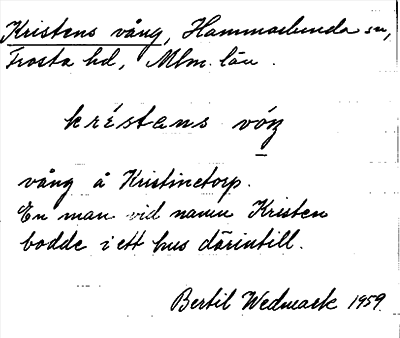 Kristens vång, Hammarlunda sn,
Frosta hd, Mlm. län.
kréstans vóŋ
vång å Kristinetorp.
En man vid namn Kristen
bodde i ett hus därintill.
Bertil Wedmark 1959.